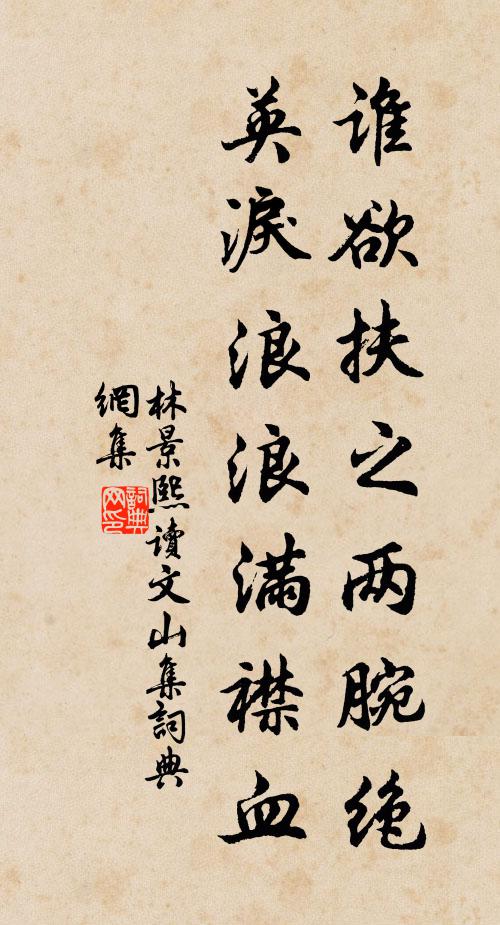 谁欲扶之两腕绝
英淚浪浪满襟血
林景熙读文山集詞典
網集
詞典
网印